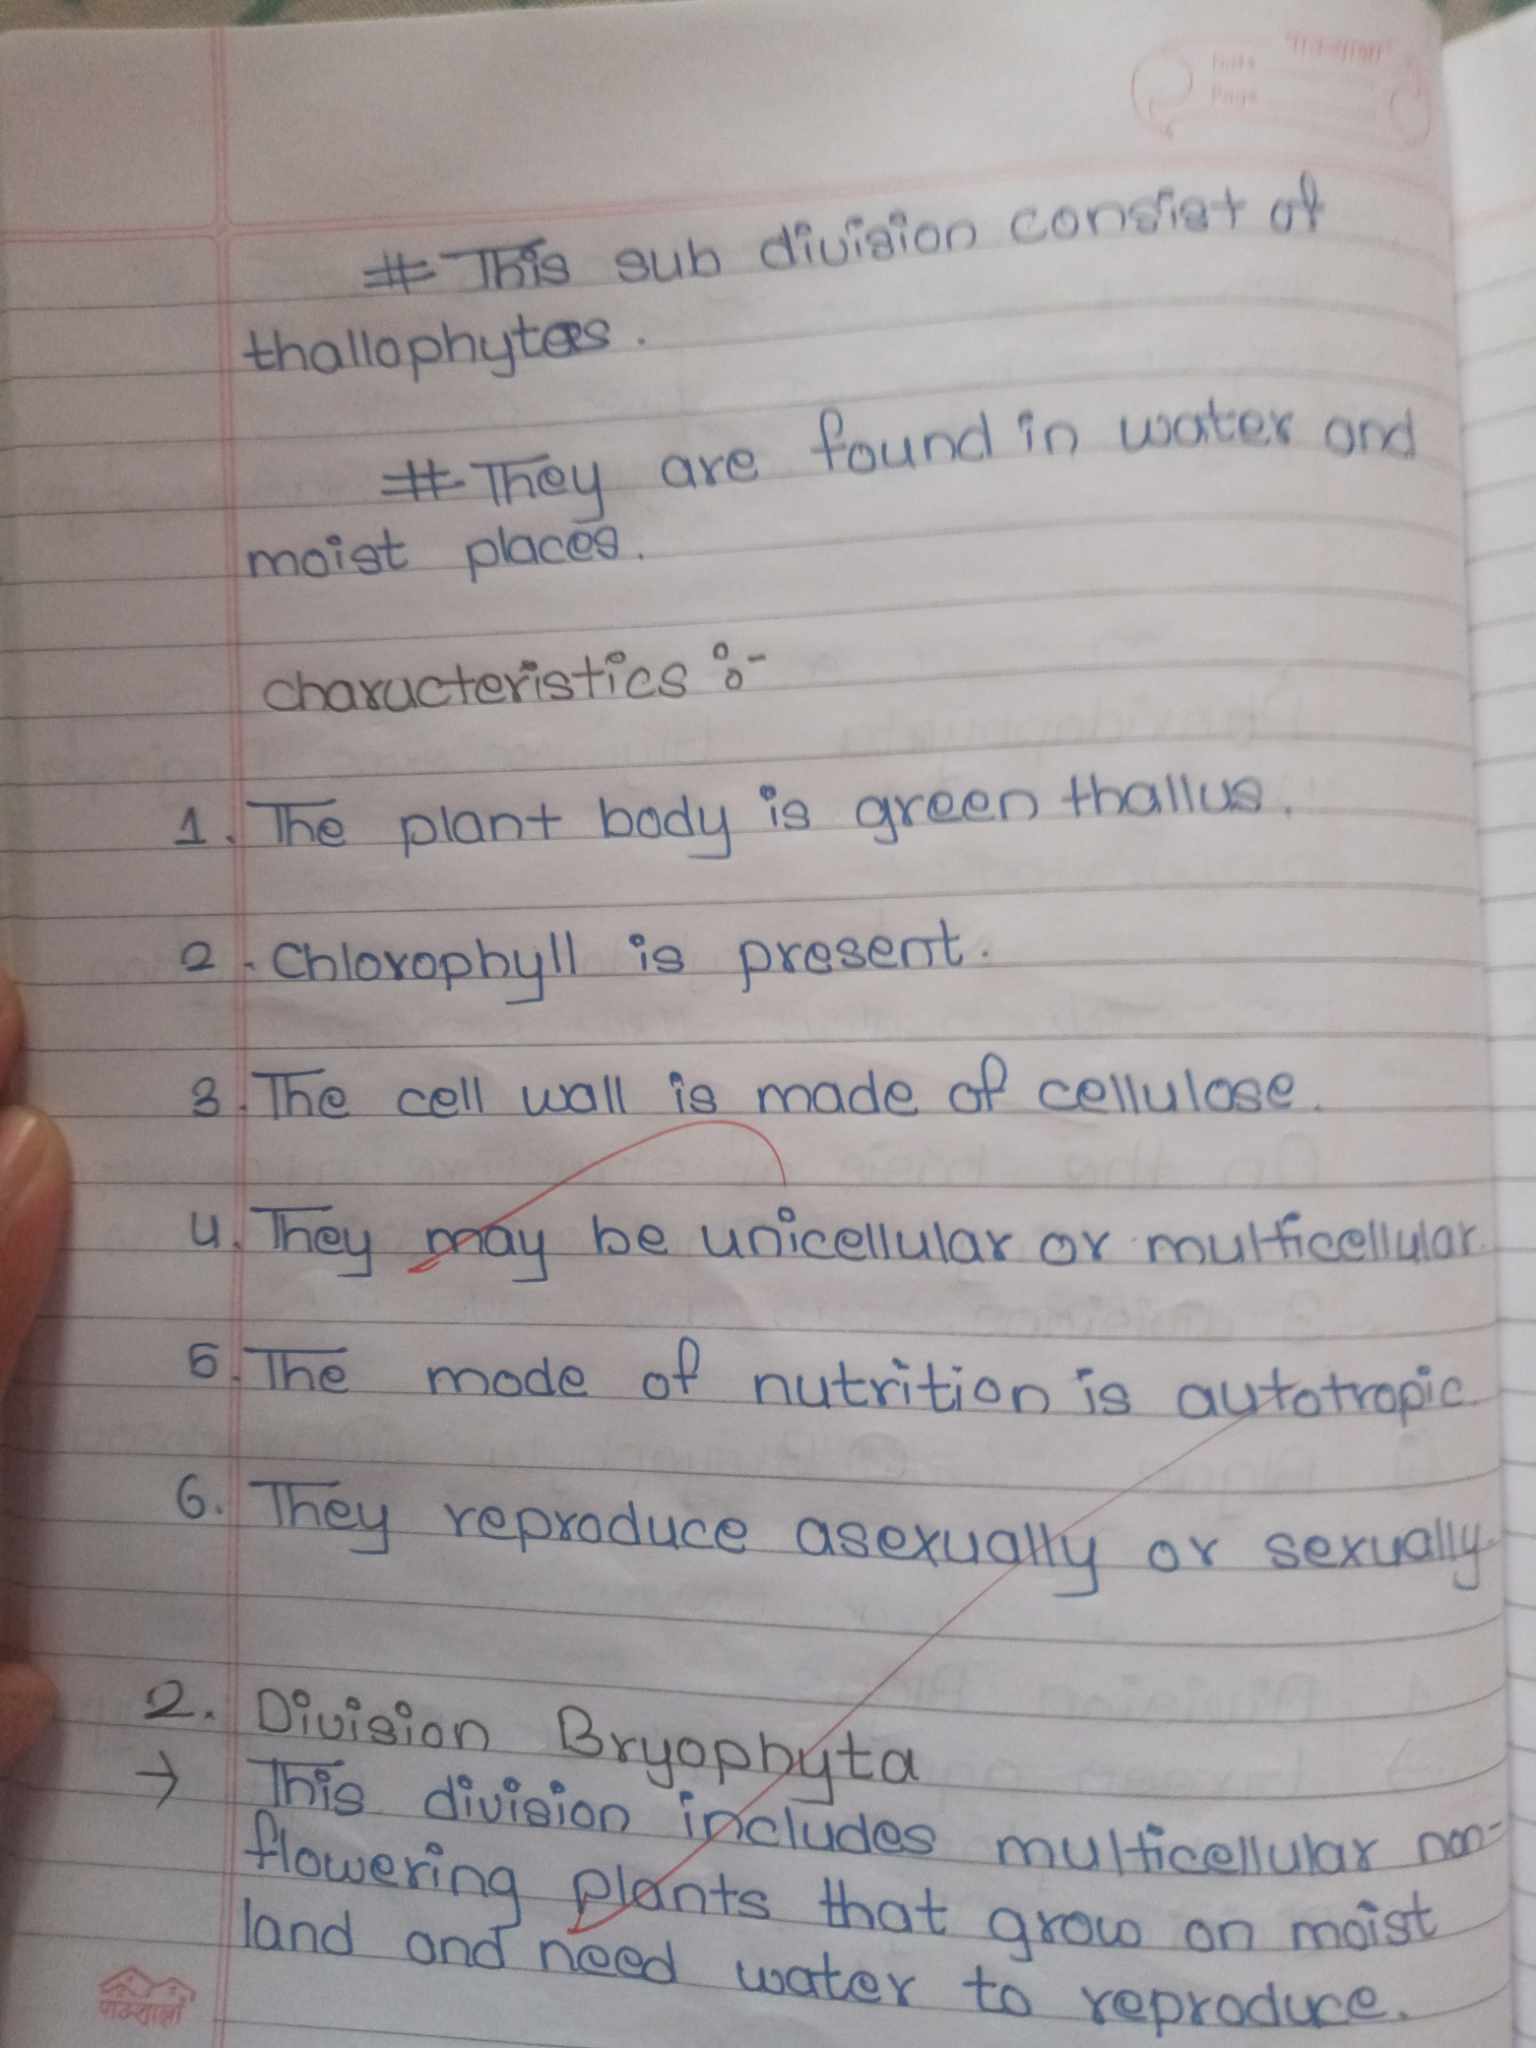 पाठशाला
Date
Page
# This sub division consist of
thallophytes.
# They are found in water and
moist places.
characteristics :-
1. The plant body is green thallus.
2. Chlorophyll is present.
3. The cell wall is made of cellulose.
4. They may be unicellular or multicellular.
5. The mode of nutrition is autotropic.
6. They reproduce asexually or sexually.
2. Division Bryophyta
→ This division includes multicellular non-
flowering plants that grow on moist
land and need water to reproduce.
पाठशाला